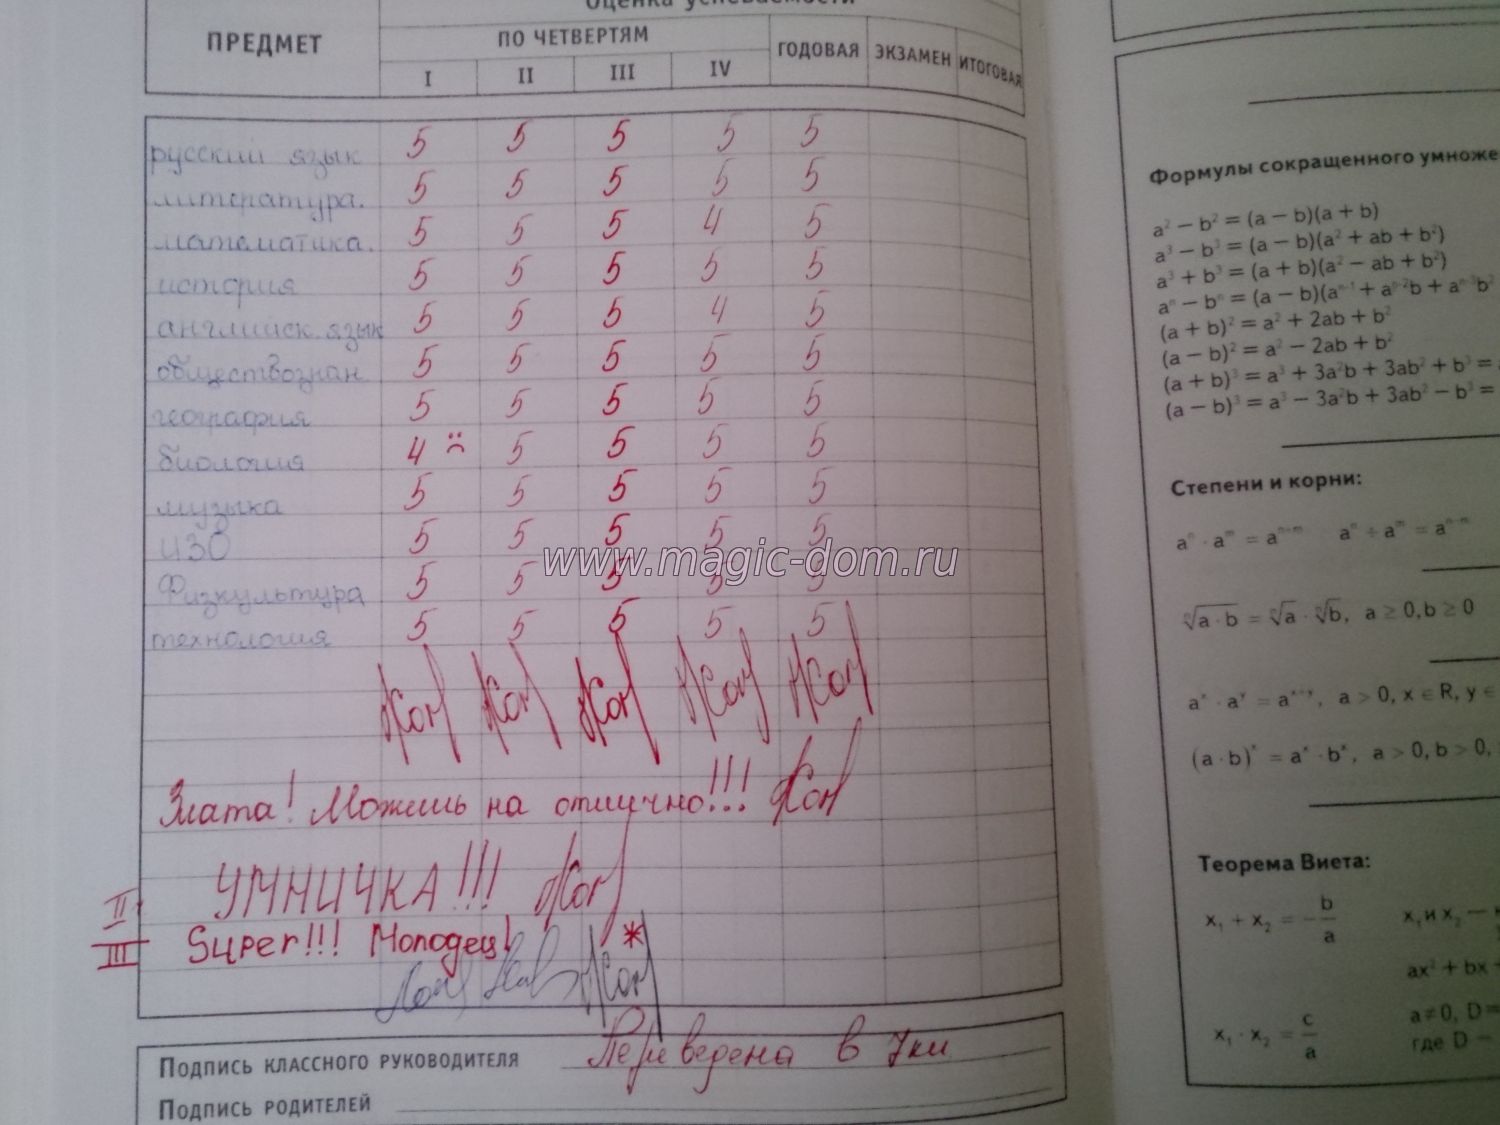 Оценка успеваемости
ПРЕДМЕТ
ПО ЧЕТВЕРТЯМ
ГОДОВАЯ ЭКЗАМЕН ИТОГОВАЯ
I II III IV
русский язык 5 5 5 5 5
литература. 5 5 5 5 5
математика. 5 5 5 4 5
история 5 5 5 5 5
английск. язык 5 5 5 4 5
обществознан. 5 5 5 5 5
география 5 5 5 5 5
биология 4 5 5 5 5
музыка 5 5 5 5 5
ИЗО 5 5 5 5 5
Физкультура 5 5 5 5 5
технология 5 5 5 5 5
Злата! Можешь на отлично!!!
II УМНИЧКА!!!
III Super!!! Молодец!
*
ПОДПИСЬ КЛАССНОГО РУКОВОДИТЕЛЯ Переведена в 7кл
ПОДПИСЬ РОДИТЕЛЕЙ
www.magic-dom.ru
Формулы сокращенного умноже
a² − b² = (a − b)(a + b)
a³ − b³ = (a − b)(a² + ab + b²)
a³ + b³ = (a + b)(a² − ab + b²)
aⁿ − bⁿ = (a − b)(aⁿ⁻¹ + aⁿ⁻²b + aⁿ⁻³b²
(a + b)² = a² + 2ab + b²
(a − b)² = a² − 2ab + b²
(a + b)³ = a³ + 3a²b + 3ab² + b³ =
(a − b)³ = a³ − 3a²b + 3ab² − b³ =
Степени и корни:
aⁿ · aᵐ = aⁿ⁺ᵐ aⁿ ÷ aᵐ = aⁿ⁻ᵐ
ⁿ√a · b = ⁿ√a · ⁿ√b, a ≥ 0, b ≥ 0
aˣ · aʸ = aˣ⁺ʸ, a > 0, x ∈ R, y ∈
(a · b)ˣ = aˣ · bˣ, a > 0, b > 0,
Теорема Виета:
x₁ + x₂ = − b/a x₁ и x₂ —
ax² + bx +
x₁ · x₂ = c/a a ≠ 0, D =
где D −